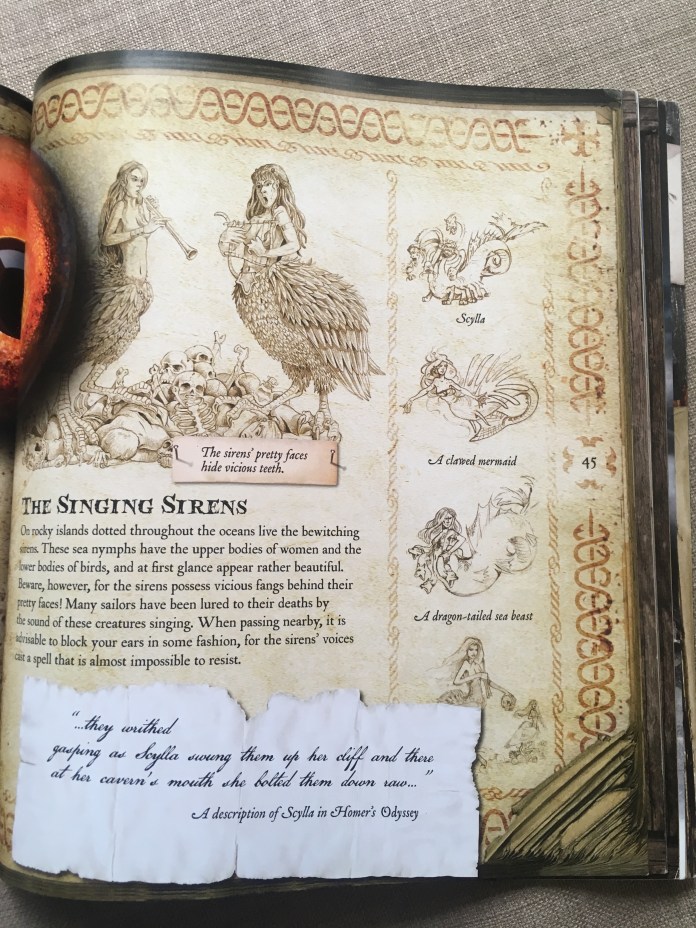 The sirens' pretty faces
hide vicious teeth.
THE SINGING SIRENS
On rocky islands dotted throughout the oceans live the bewitching
sirens. These sea nymphs have the upper bodies of women and the
lower bodies of birds, and at first glance appear rather beautiful.
Beware, however, for the sirens possess vicious fangs behind their
pretty faces! Many sailors have been lured to their deaths by
the sound of these creatures singing. When passing nearby, it is
advisable to block your ears in some fashion, for the sirens' voices
cast a spell that is almost impossible to resist.
"...they writhed
gasping as Scylla swung them up her cliff and there
at her cavern's mouth she bolted them down raw..."
A description of Scylla in Homer's Odyssey
Scylla
A clawed mermaid
A dragon-tailed sea beast
45